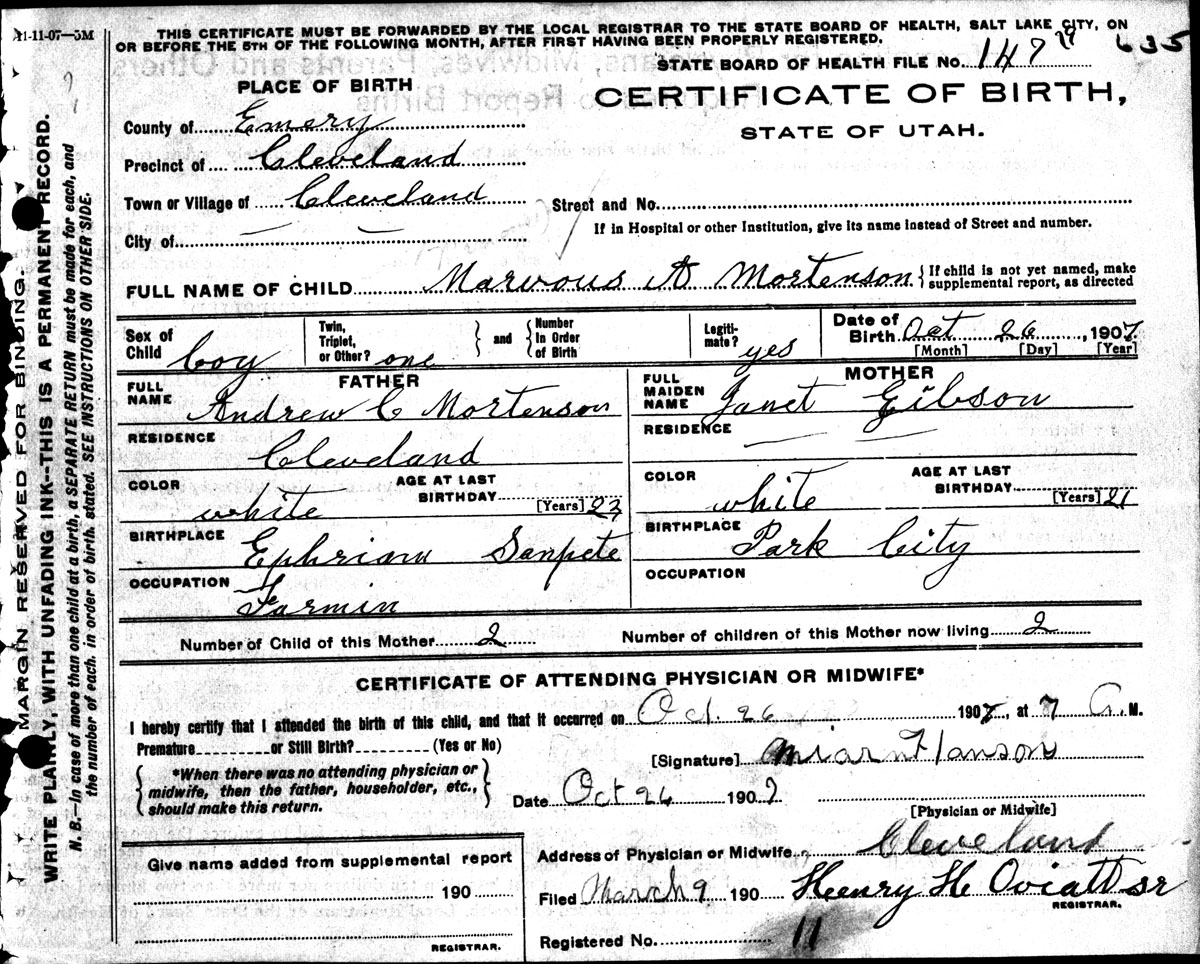 11-11-07—5M
THIS CERTIFICATE MUST BE FORWARDED BY THE LOCAL REGISTRAR TO THE STATE BOARD OF HEALTH, SALT LAKE CITY, ON
OR BEFORE THE 5TH OF THE FOLLOWING MONTH, AFTER FIRST HAVING BEEN PROPERLY REGISTERED.
STATE BOARD OF HEALTH FILE No. 147 635
PLACE OF BIRTH
CERTIFICATE OF BIRTH,
STATE OF UTAH.
County of Emery
Precinct of Cleveland
Town or Village of Cleveland
Street and No.
If in Hospital or other Institution, give its name instead of Street and number.
City of — —
FULL NAME OF CHILD Marvous A Mortenson { If child is not yet named, make
supplemental report, as directed
Sex of Child boy
Twin, Triplet, or Other? one } and { Number In Order of Birth
Legiti-mate? yes
Date of Birth Oct 26, 1907.
[Month] [Day] [Year]
FATHER
FULL NAME Andrew C Mortenson
RESIDENCE Cleveland
COLOR white
AGE AT LAST BIRTHDAY [Years] 23
BIRTHPLACE Ephriam Sanpete
OCCUPATION Farmin
MOTHER
FULL MAIDEN NAME Janet Gibson
RESIDENCE — —
COLOR white
AGE AT LAST BIRTHDAY [Years] 21
BIRTHPLACE Park City
OCCUPATION
Number of Child of this Mother 2
Number of children of this Mother now living 2
CERTIFICATE OF ATTENDING PHYSICIAN OR MIDWIFE*
I hereby certify that I attended the birth of this child, and that it occurred on Oct. 26 1907, at 7 A. M.
Premature or Still Birth? (Yes or No)
[Signature] Hanson
{ *When there was no attending physician or
midwife, then the father, householder, etc.,
should make this return. }
Date Oct 26 1907
[Physician or Midwife]
Address of Physician or Midwife Cleveland
Give name added from supplemental report
190
REGISTRAR.
Filed March 9 190 Henry H Oviatt sr
REGISTRAR.
Registered No. 11
MARGIN RESERVED FOR BINDING.
WRITE PLAINLY, WITH UNFADING INK--THIS IS A PERMANENT RECORD.
N. B.—In case of more than one child at a birth, a SEPARATE RETURN must be made for each, and
the number of each, in order of birth, stated. SEE INSTRUCTIONS ON OTHER SIDE.